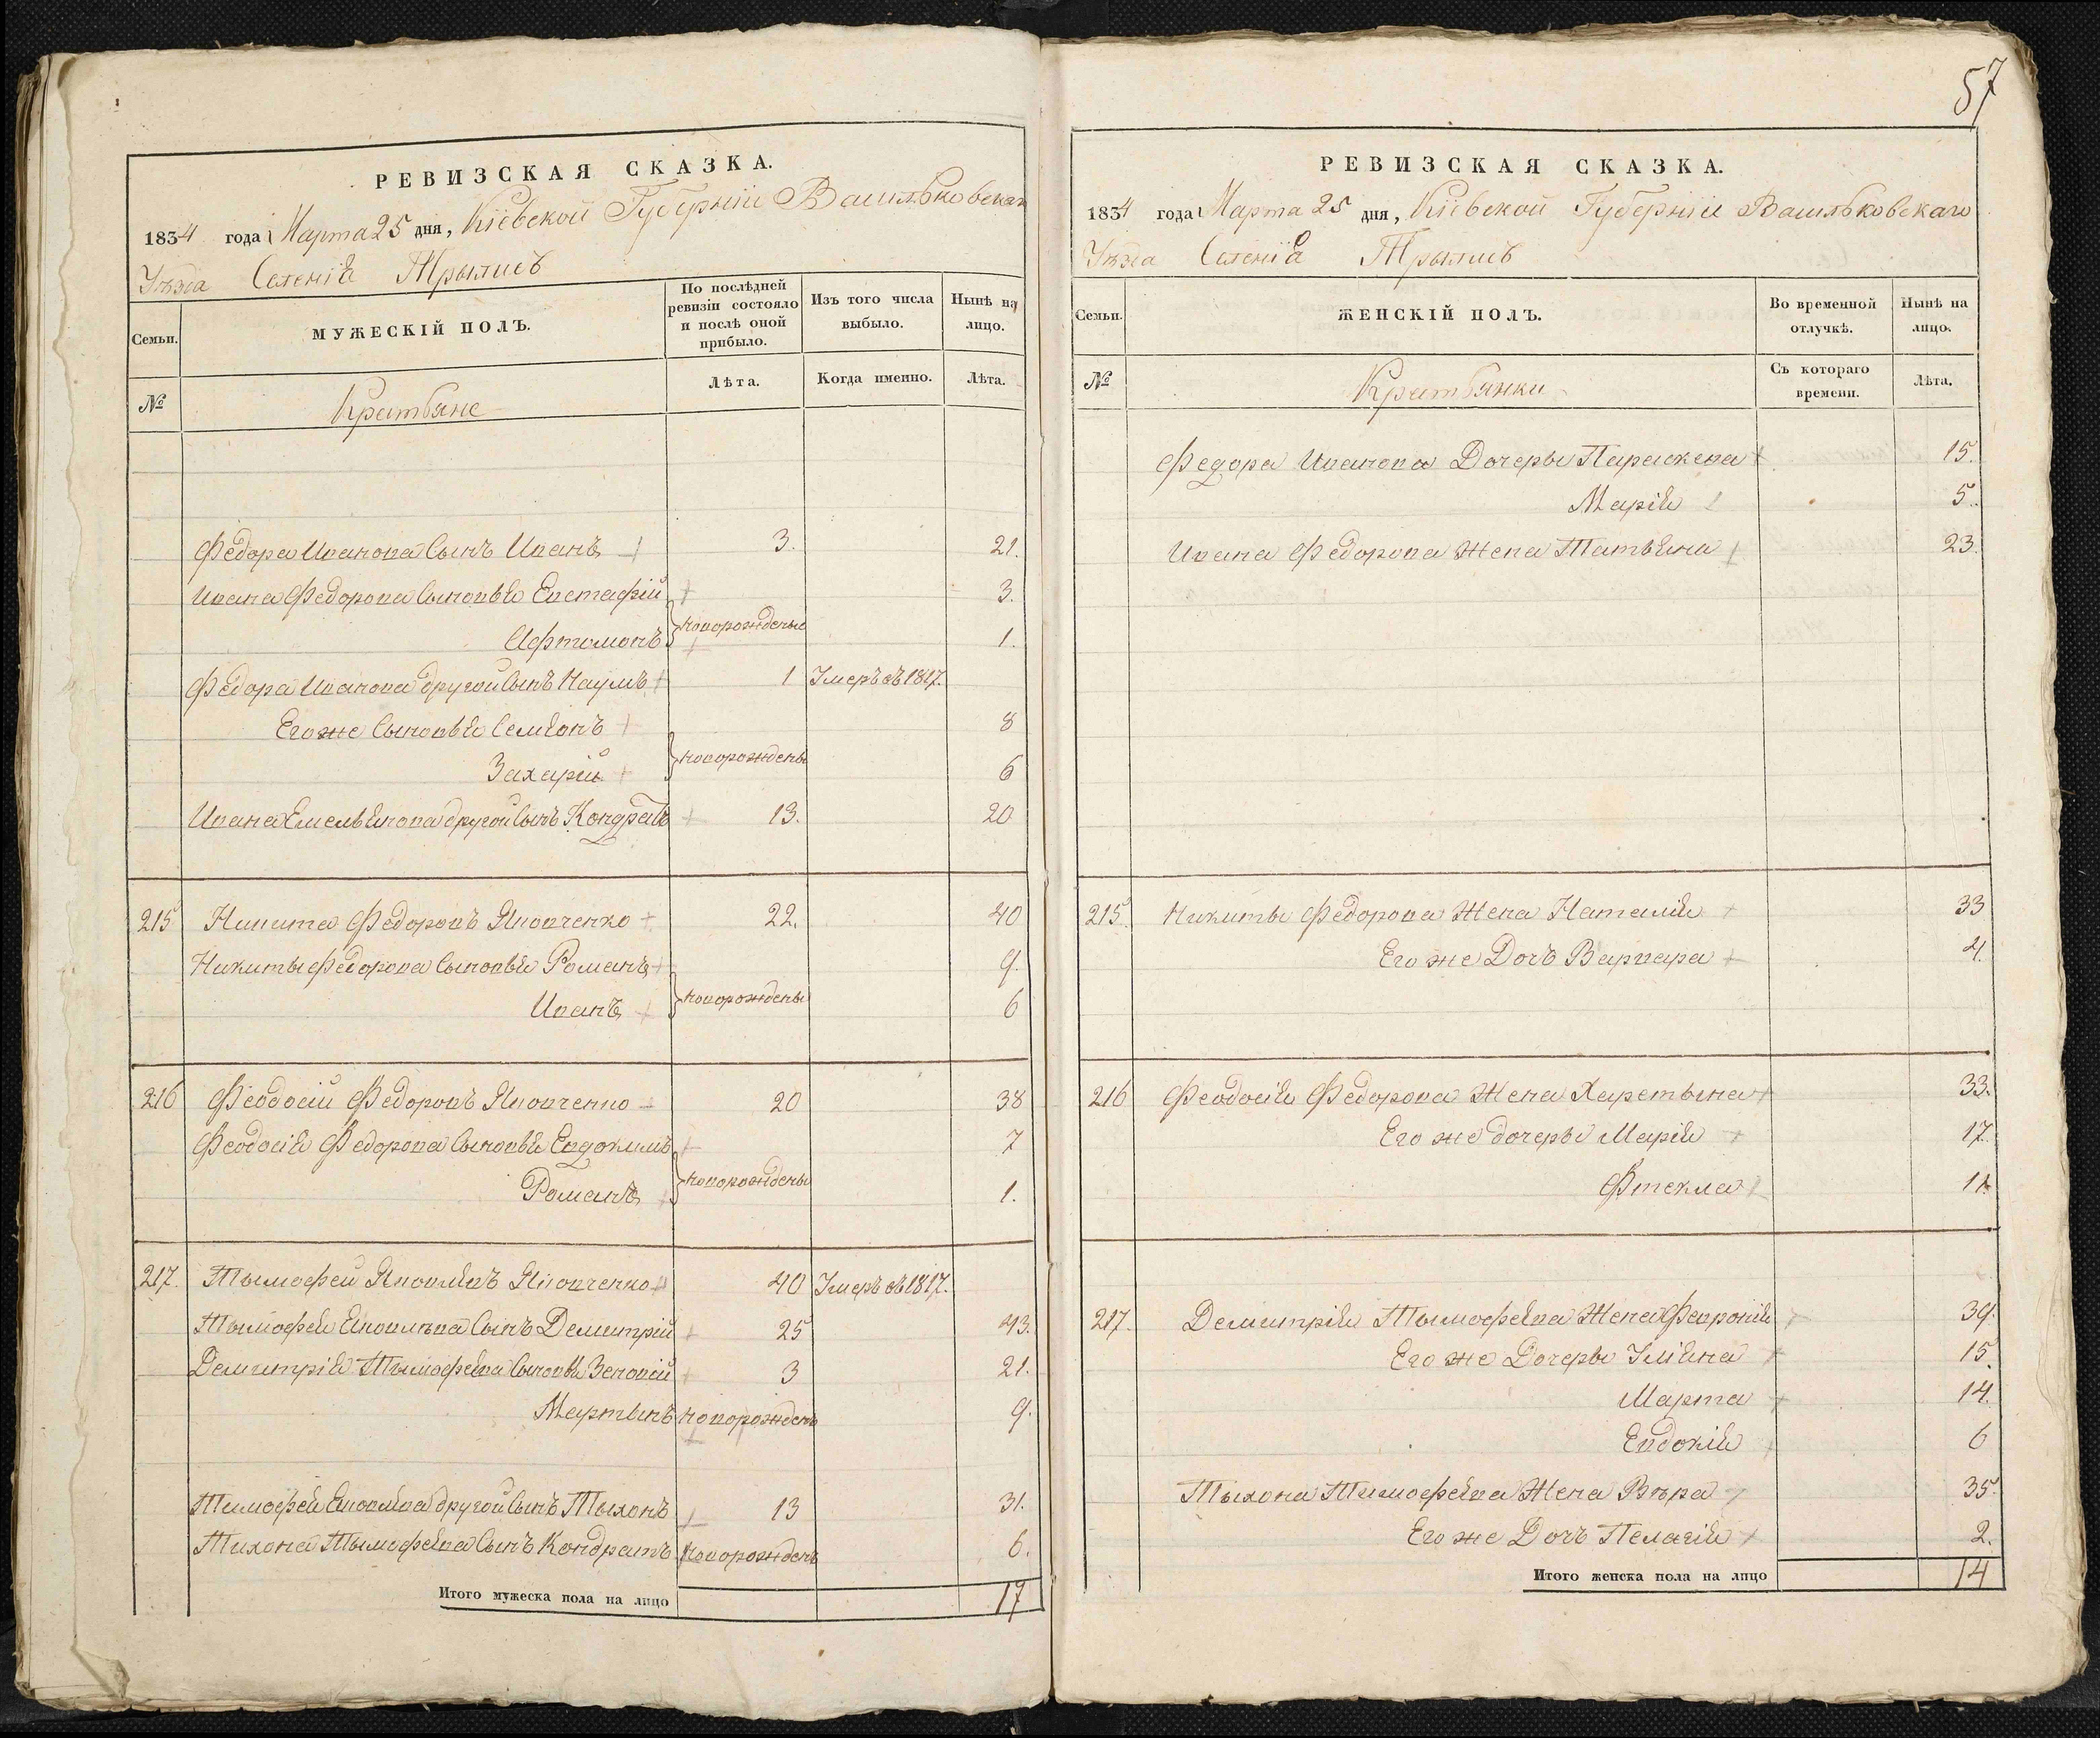 РЕВИЗСКАЯ СКАЗКА.
1834 года Марта 25 дня, Кіевской Губерніи Васильковскаго
Уѣзда Селенія Трылисъ
Семьи. МУЖЕСКІЙ ПОЛЪ. По послѣдней ревизіи состояло и послѣ оной прибыло. Изъ того числа выбыло. Нынѣ на лицо.
№ Крестьяне Лѣта. Когда именно. Лѣта.
Федора Иванова Сынъ Иванъ 3. 21.
Ивана Федорова Сыновья Евстафій 3.
новорождены
Афтомонъ 1.
Федора Иванова другой Сынъ Наумъ 1 Умеръ въ 1817.
Его же Сыновья Семіонъ 8
новорождены
Захарій 6
Ивана Емельянова другой Сынъ Кондратъ 13. 20
215 Никита Федоровъ 22. 40
Никиты Федорова Сыновья Романъ 9.
новорождены
Иванъ 6
216 Феодосій Федоровъ 20 38
Феодосія Федорова Сыновья Евдокимъ 7
новорождены
Романъ 1.
217. Тымофей 40 Умеръ въ 1817.
Тымофея Сынъ Демитрій 25 43.
Демитрія Тымофеева Сыновья Зеновій 3 21.
Мартынъ новорожденъ 9.
Тимофея другой Сынъ Тыхонъ 13 31.
Тихона Тымофеева Сынъ Кондратъ новорожденъ 6.
Итого мужеска пола на лицо 17
57
РЕВИЗСКАЯ СКАЗКА.
1834 года Марта 25 дня, Кіевской Губерніи Васильковскаго
Уѣзда Селенія Трылисъ
Семьи. ЖЕНСКІЙ ПОЛЪ. Во временной отлучкѣ. Нынѣ на лицо.
№ Крестьянки Съ котораго времени. Лѣта.
Федора Иванова Дочеры Параскева 15.
Марія 5.
Ивана Федорова Жена Татьяна 23.
215. Никиты Федорова Жена Наталія 33
Его же Дочъ Варвара 4.
216 Феодосія Федорова Жена Харетына 33.
Его же дочеры Марія 17.
Фтекла 11
217. Демитрія Тымофеева Жена Февронія 39.
Его же Дочеры Уліяна 15.
Марта 14.
Евдокія 6
Тыхона Тимофеева Жена Вѣра 35.
Его же Дочъ Пелагія 2.
Итого женска пола на лицо 14